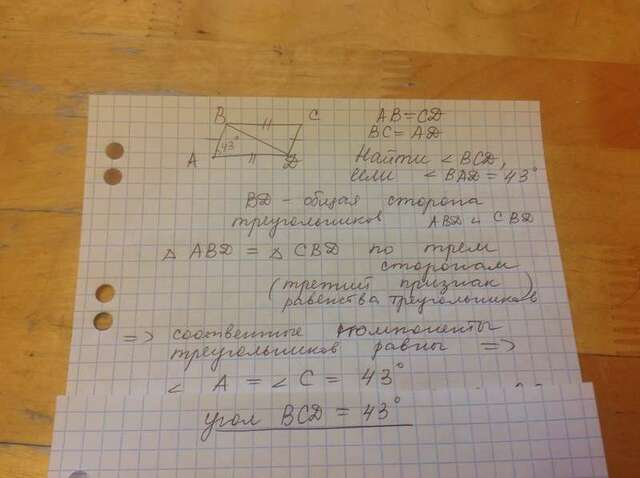 B C
43°
A D
AB=CD
BC=AD
Найти < BCD,
если < BAD = 43°
BD - общая сторона
треугольников ABD и CBD
△ ABD = △ CBD по трем
сторонам
(третий признак
равенства треугольников)
=> соответвенные компоненты
треугольников равны =>
< A = < C = 43°
угол BCD = 43°